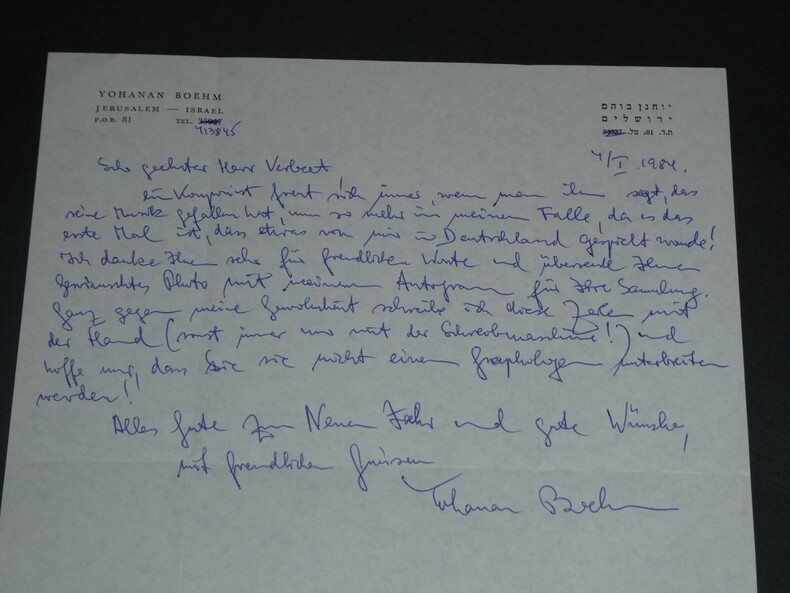 YOHANAN BOEHM
JERUSALEM — ISRAEL
P.O.B. 81 TEL.
413845
יוחנן בוהם
ירושלים
ת.ד. 81, טל.
4/I 1984.
Sehr geehrter Herr Verbeet!
ein Komponist freut sich immer, wenn man ihm sagt, das
seine Musik gefallen hat, um so mehr in meinem Falle, da es das
erste Mal ist, dass etwas von mir in Deutschland gespielt wurde!
Ich danke Ihnen sehr für freundlichen Worte und übersende Ihnen
gewünschtes Photo mit meinem Autogram für Ihre Sammlung.
Ganz gegen meine Gewohnheit schreibe ich diese Zeilen mit
der Hand (sonst immer nur mit der Schreibmaschine!) und
hoffe nur, dass Sie sie nicht einem Graphologen unterbreiten
werden!
Alles Gute zum Neuen Jahr und gute Wünsche,
mit freundlichen Grüssen
Yohanan Boehm